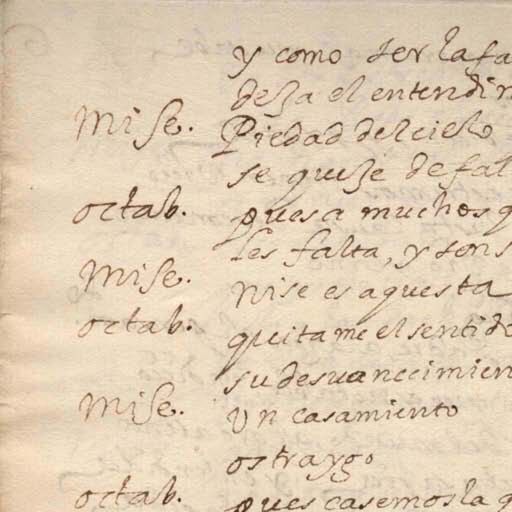 y como ser la fa
deza el entendim
Mise. Piedad del cielo
se quize de fal
octab. pues a muchos q
les falta, y sons
Mise. Nise es aquesta
octab. quitame el sentido
su desuanecimien
Mise. Un casamiento
os traygo
octab. pues casemosla q